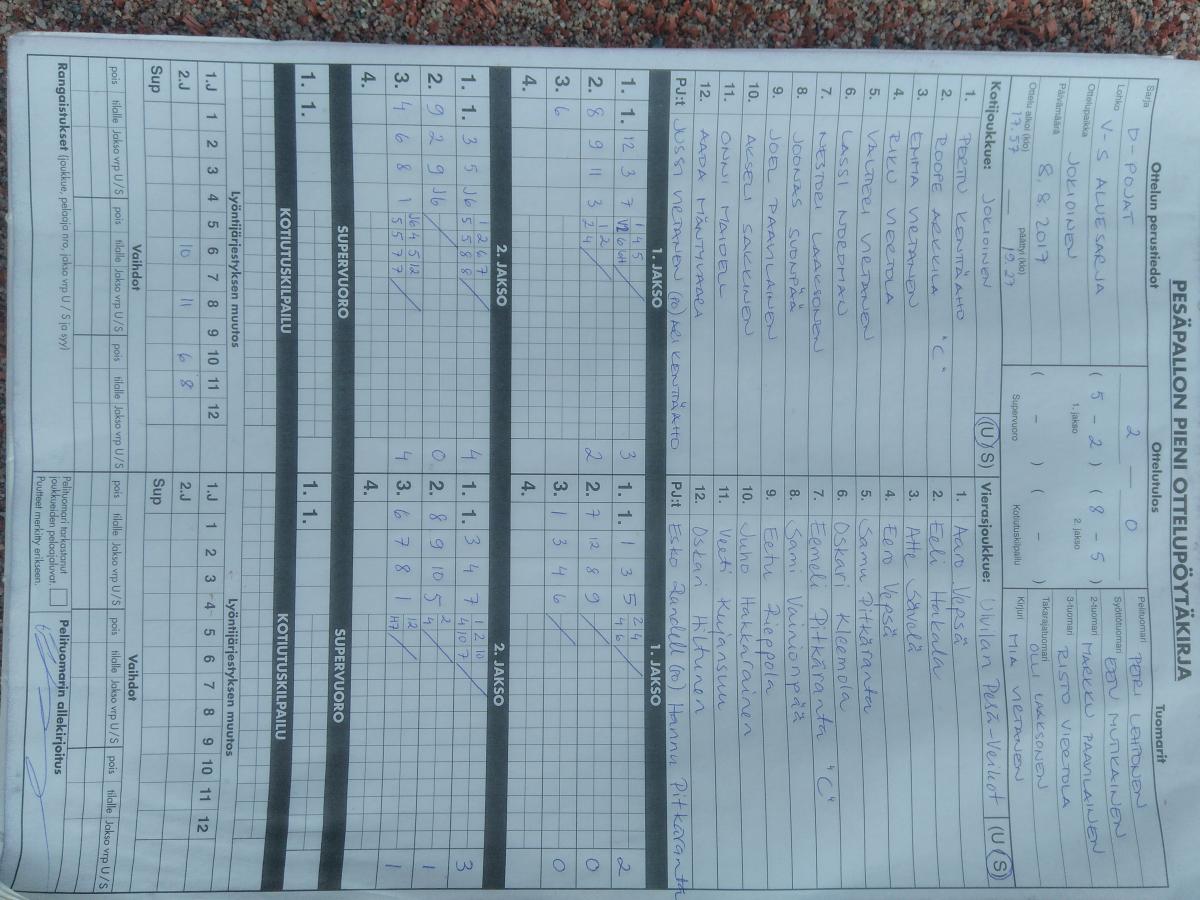 PESÄPALLON PIENI OTTELUPÖYTÄKIRJA
Ottelun perustiedot
Ottelutulos
Tuomarit
Sarja D-POJAT
Lohko V-S ALUESARJA
Ottelupaikka JOKIOINEN
Päivämäärä 8.8.2017
Ottelu alkoi (klo) 17.57 päättyi (klo) 19.27
2 — 0
( 5 - 2 ) ( 8 - 5 )
1. jakso 2. jakso
( - ) ( - )
Supervuoro Kotiutuskilpailu
Pelituomari PETRI LEHTONEN
Syöttötuomari EEN MUTKAINEN
2-tuomari MARKKU PAAVILAINEN
3-tuomari RISTO VIERTOLA
Takarajatuomari OLLI LAAKSONEN
Kirjuri MIA VIETANEN
Kotijoukkue: JOKIOINEN (U/S)
1. PERTTU KENTTÄAHO
2. ROOPE ARKKILA "C"
3. EMMA VIETANEN
4. RIKU VIERTOLA
5. VALTTERI VIRTANEN
6. LASSI NORDMAN
7. NESTORI LAAKSONEN
8. JOONAS SUONPÄÄ
9. JOEL PAAVILAINEN
10. AKSELI SAKKINEN
11. ONNI MAIDELL
12. AADA MÄNTYVAARA
PJ:t JUSSI VIETANEN (PJ) ARI KENTTÄAHO
Vierasjoukkue: Ulvilan Pesä-Veikot (U/S)
1. Aaro Vepsä
2. Eeli Hakala
3. Atte Sävelä
4. Eero Vepsä
5. Samu Pitkäranta
6. Oskari Kleemola
7. Eemeli Pitkäranta "C"
8. Sami Vainionpää
9. Eetu Rieppola
10. Juho Hakkarainen
11. Veeti Kujansuu
12. Oskari Hiltunen
PJ:t Esko Randell (PJ) Hannu Pitkäranta
1. JAKSO
1. 1. 12 3 7 3
2. 8 9 11 3 2
3. 6
4.
1. JAKSO
1. 1. 1 3 5 2
2. 7 12 8 9 0
3. 1 3 4 6 0
4.
2. JAKSO
1. 1. 3 5 J6 4
2. 9 2 9 J6 0
3. 4 6 8 1 4
4.
2. JAKSO
1. 1. 3 4 7 3
2. 8 9 10 5 1
3. 6 7 8 1 1
4.
SUPERVUORO
1. 1.
SUPERVUORO
1. 1.
KOTIUTUSKILPAILU
KOTIUTUSKILPAILU
Lyöntijärjestyksen muutos
1.J 1 2 3 4 5 6 7 8 9 10 11 12
2.J 10 11 6 8
Sup
Lyöntijärjestyksen muutos
1.J 1 2 3 4 5 6 7 8 9 10 11 12
2.J
Sup
Vaihdot
pois tilalle Jakso vrp U/S pois tilalle Jakso vrp U/S pois tilalle Jakso vrp U/S pois tilalle Jakso vrp U/S
Vaihdot
pois tilalle Jakso vrp U/S pois tilalle Jakso vrp U/S pois tilalle Jakso vrp U/S
Rangaistukset (joukkue, pelaaja nro, jakso vrp U / S ja syy)
Pelituomari tarkastanut
joukkueiden pelaajaluvat.
Puutteet merkitty erikseen.
Pelituomarin allekirjoitus